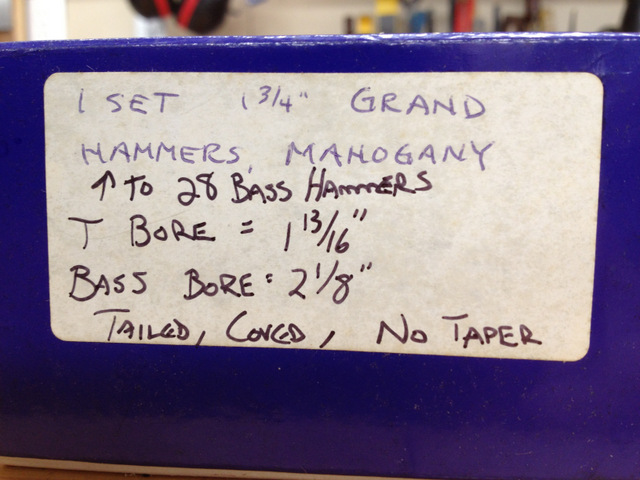 1 SET 1 3/4" GRAND
HAMMERS, MAHOGANY
↑ TO 28 BASS HAMMERS
T BORE = 1 13/16"
BASS BORE = 2 1/8"
TAILED, COVED, NO TAPER